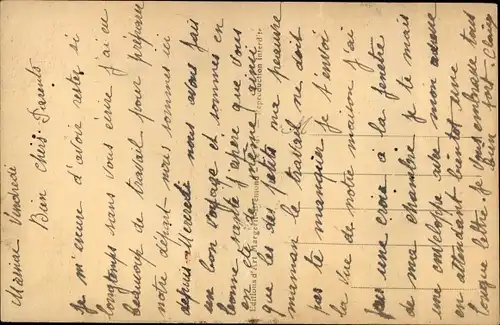 Vendredi
Bien chers Parents
Je m'excuse d'avoir resté si
longtemps sans vous écrire j'ai eu
beaucoup de travail pour préparer
notre départ nous sommes ici
depuis Mercredi nous avons fait
un bon voyage et sommes en
bonne santé j'espère que vous
en de même ainsi
que les petits ma pauvre
maman le travail ne doit
pas te manquer je t'envoi
la vue de notre maison j'ai
fait une croix à la fenêtre
de ma chambre je te mais
une enveloppe avec mon
en attendant bientôt une
longue lettre. Je vous embrasse tous
bien fort.
Editions d'Art
Reproduction Interdite